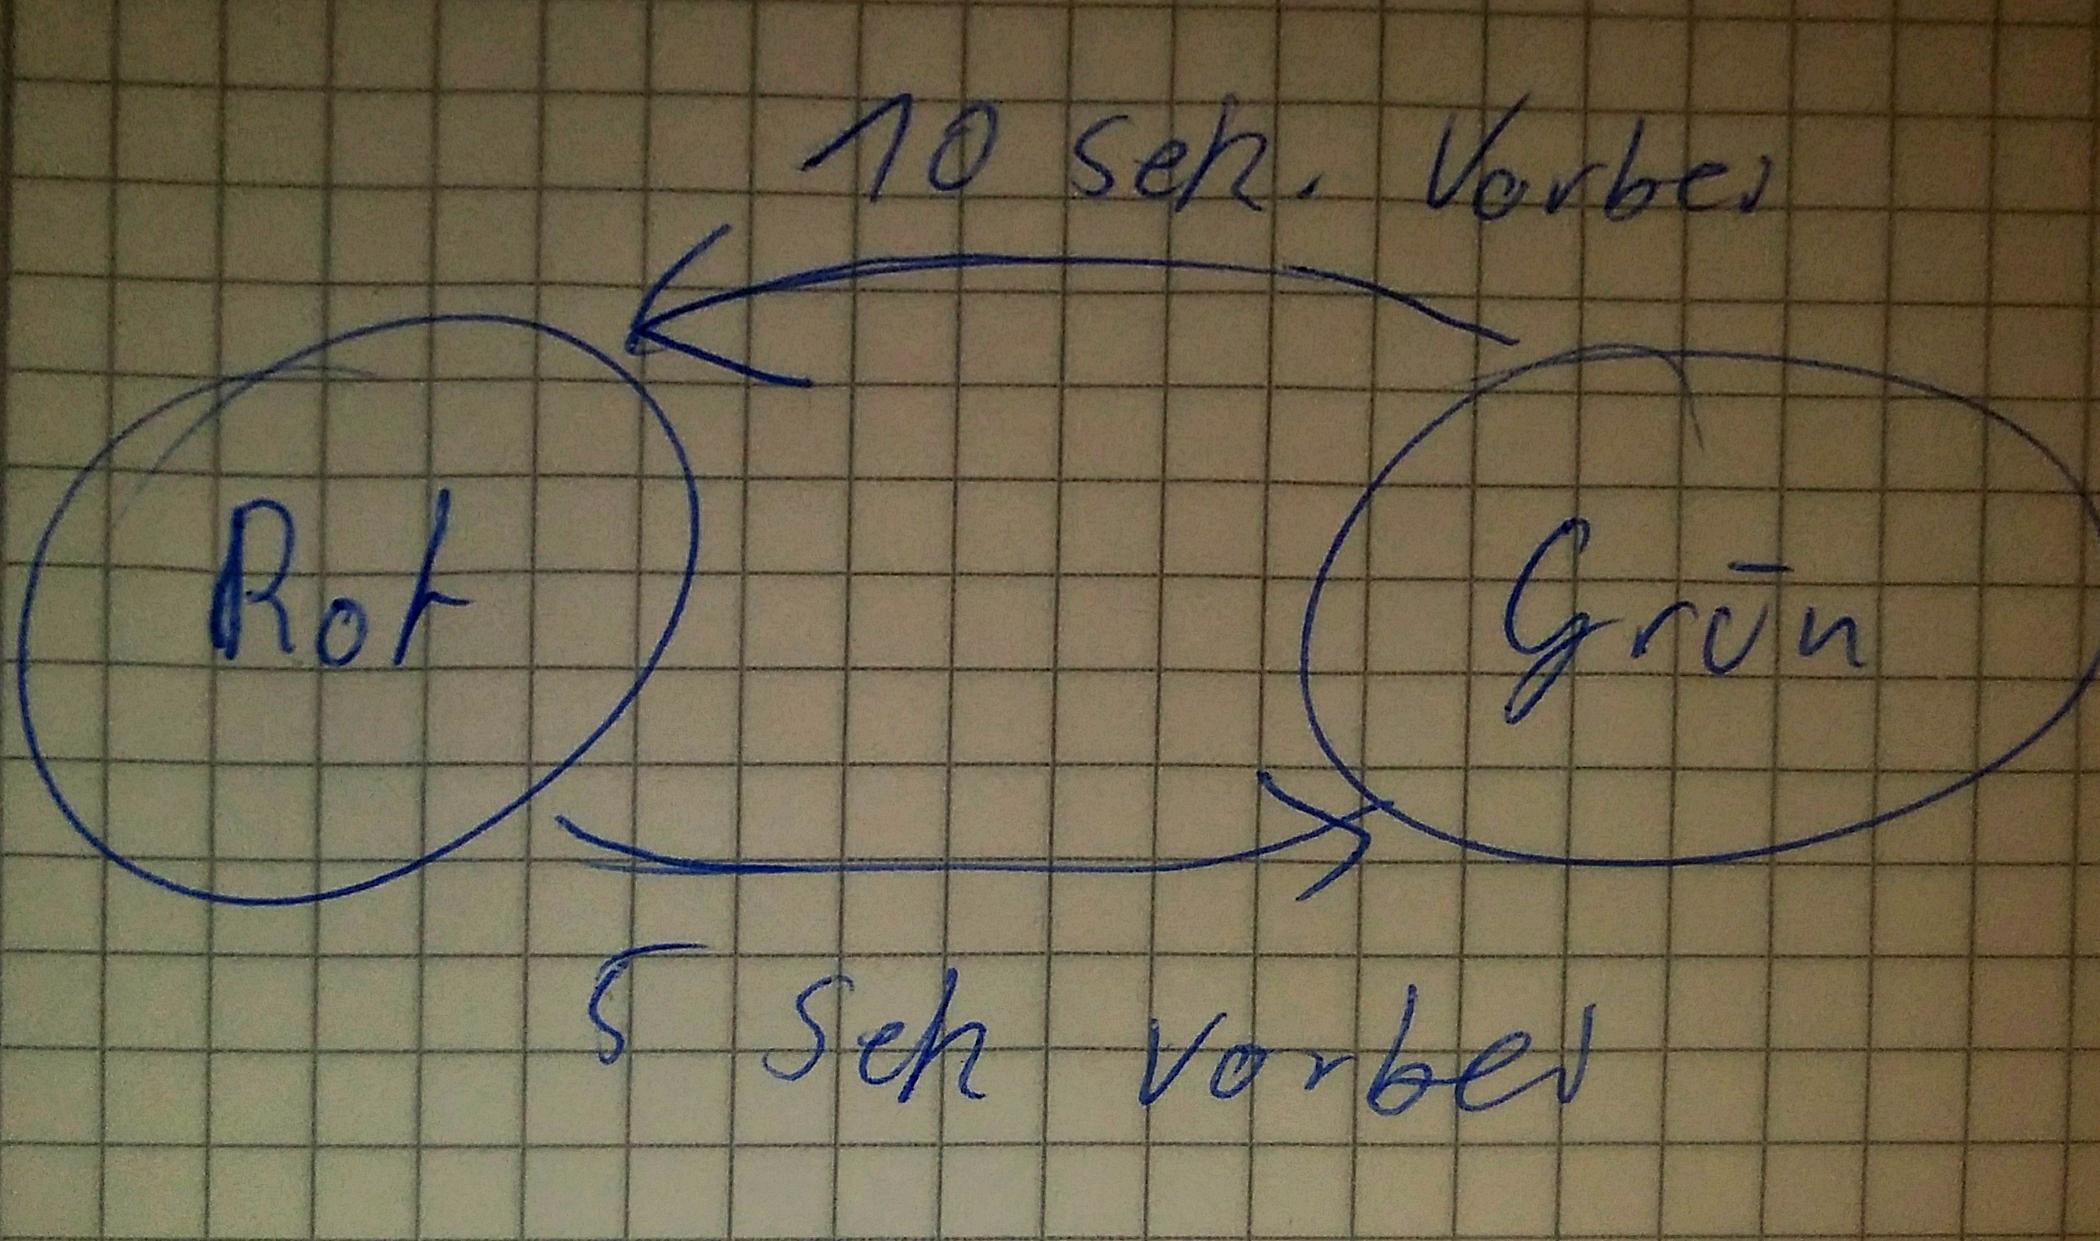 10 sek. Vorbei
Rot
Grün
5 Sek vorbei